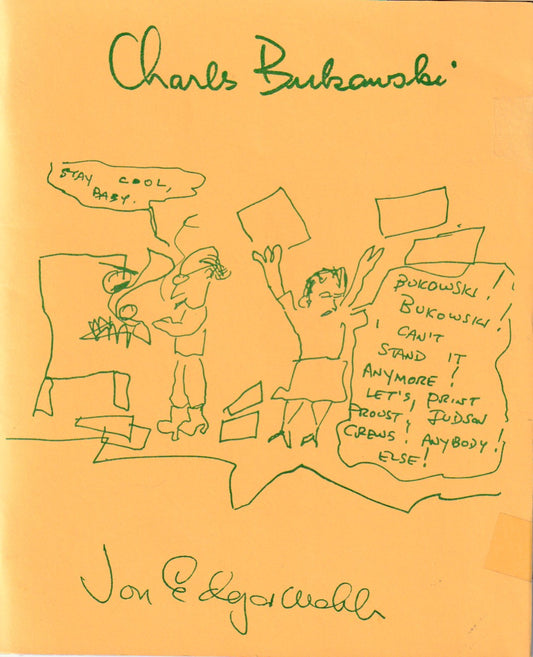 Charles Bukowski
STAY COOL,
BABY.
BUKOWSKI!
BUKOWSKI!
I CAN'T
STAND IT
ANYMORE!
LET'S, PRINT
PROUST, JUDSON
CREWS! ANYBODY!
ELSE!
Jon Edgar Webb